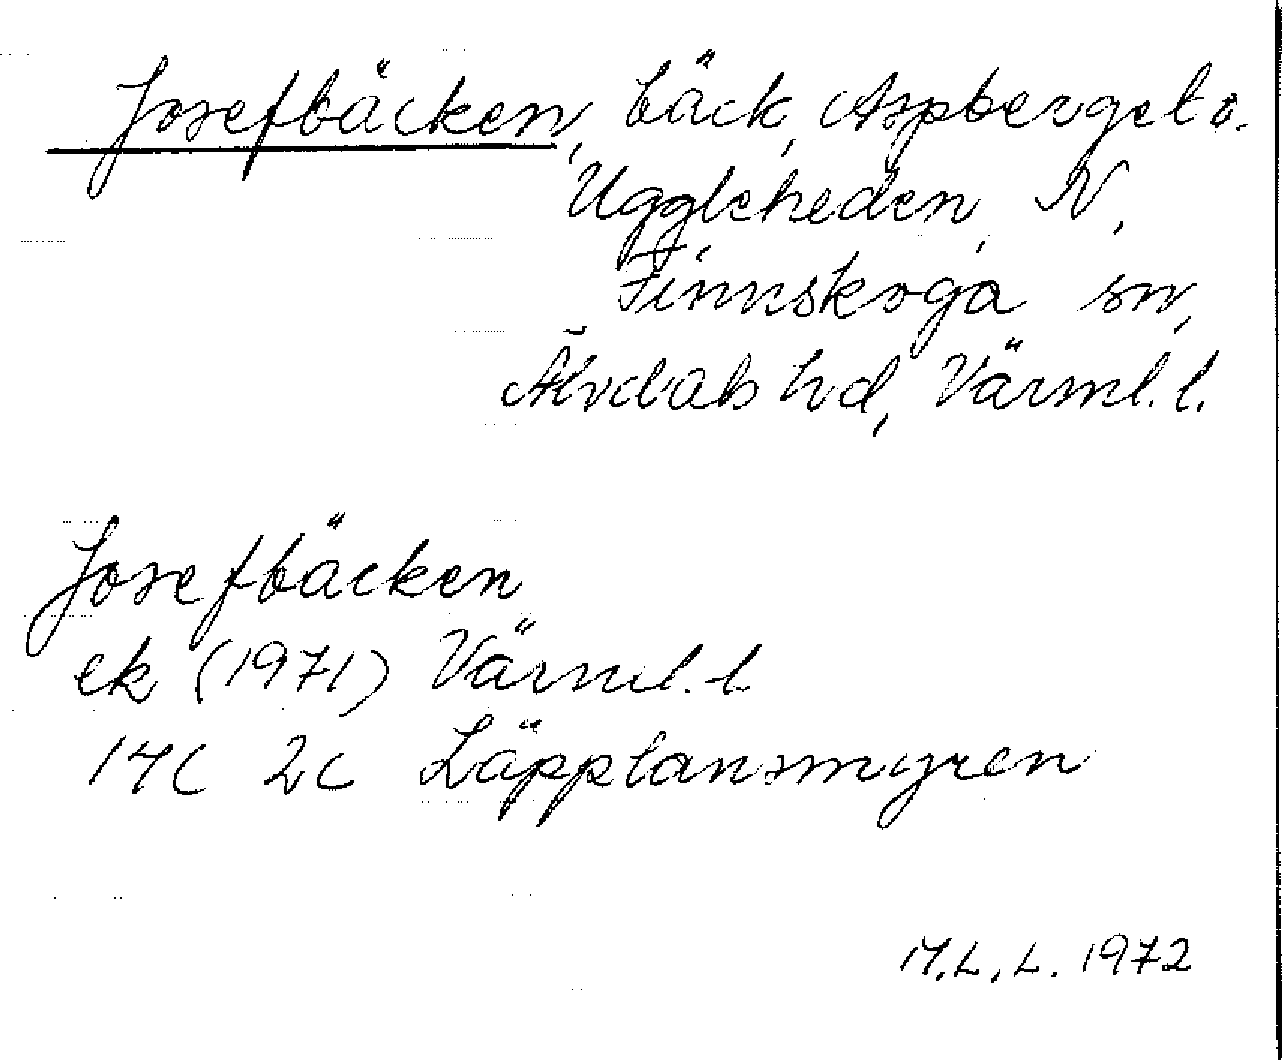 Josefbäcken, bäck, Aspberget o.
Uggleheden, N,
Finnskoga sn,
Älvdals hd, Värml. l.
Josefbäcken
ek (1971) Värml. l.
17C 2c Läpplansmyren
M.L.L. 1972